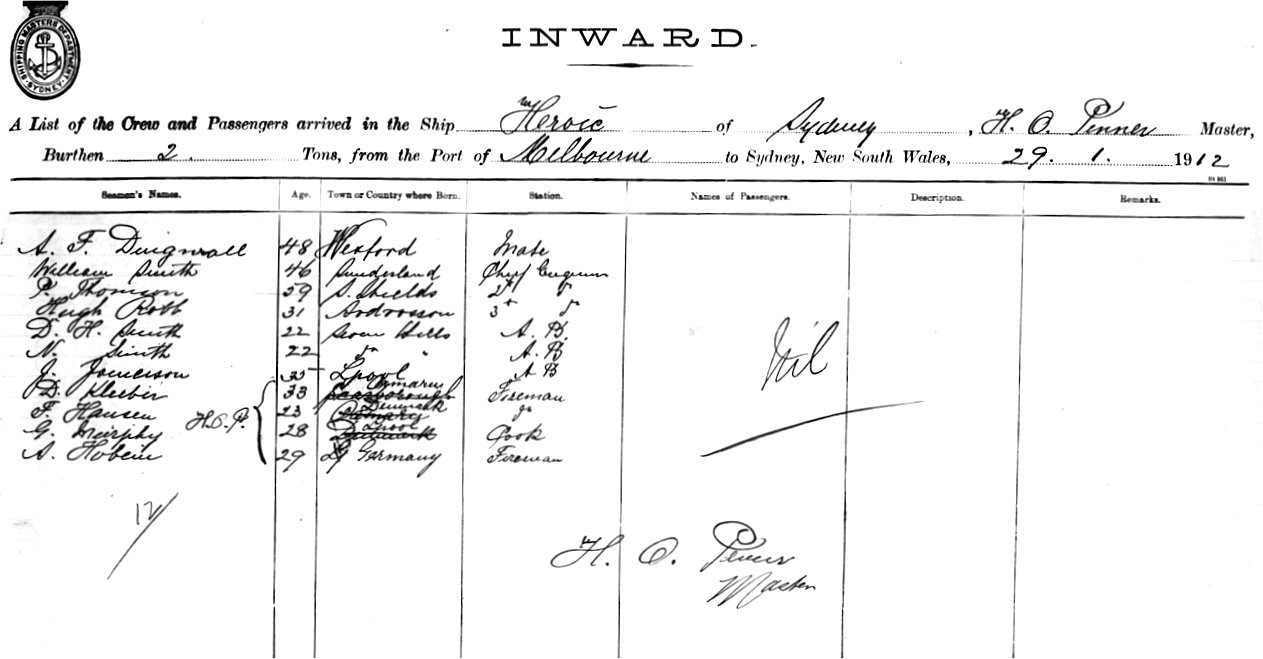 SHIPPING MASTERS DEPARTMENT SYDNEY
INWARD.
A List of the Crew and Passengers arrived in the Ship Heroic of Sydney, H. O. Penner Master,
Burthen 2. Tons, from the Port of Melbourne to Sydney, New South Wales, 29. 1. 1912
Seamen's Names. Age. Town or Country where Born. Station. Names of Passengers. Description. Remarks.
A. F. Dingwall 48 Wexford Mate
William Smith 46 Sunderland Chief
P. Thomson 59 S. Shields 2
Hugh Robb 31 Ardrossan 3
D. H. Smith 22 Seven Hills A. B.
N. Smith 22 " A. B
J. Jamerson 35 Lpool A B
D. Kleiber 33 Scarborough Fireman
F. Hansen 23 Denmark
H.O.P.
G. Murphy 28 Lpool Denmark Cook
A. Hobein 29 Germany Fireman
Nil
12/
H. O. Penner
Master